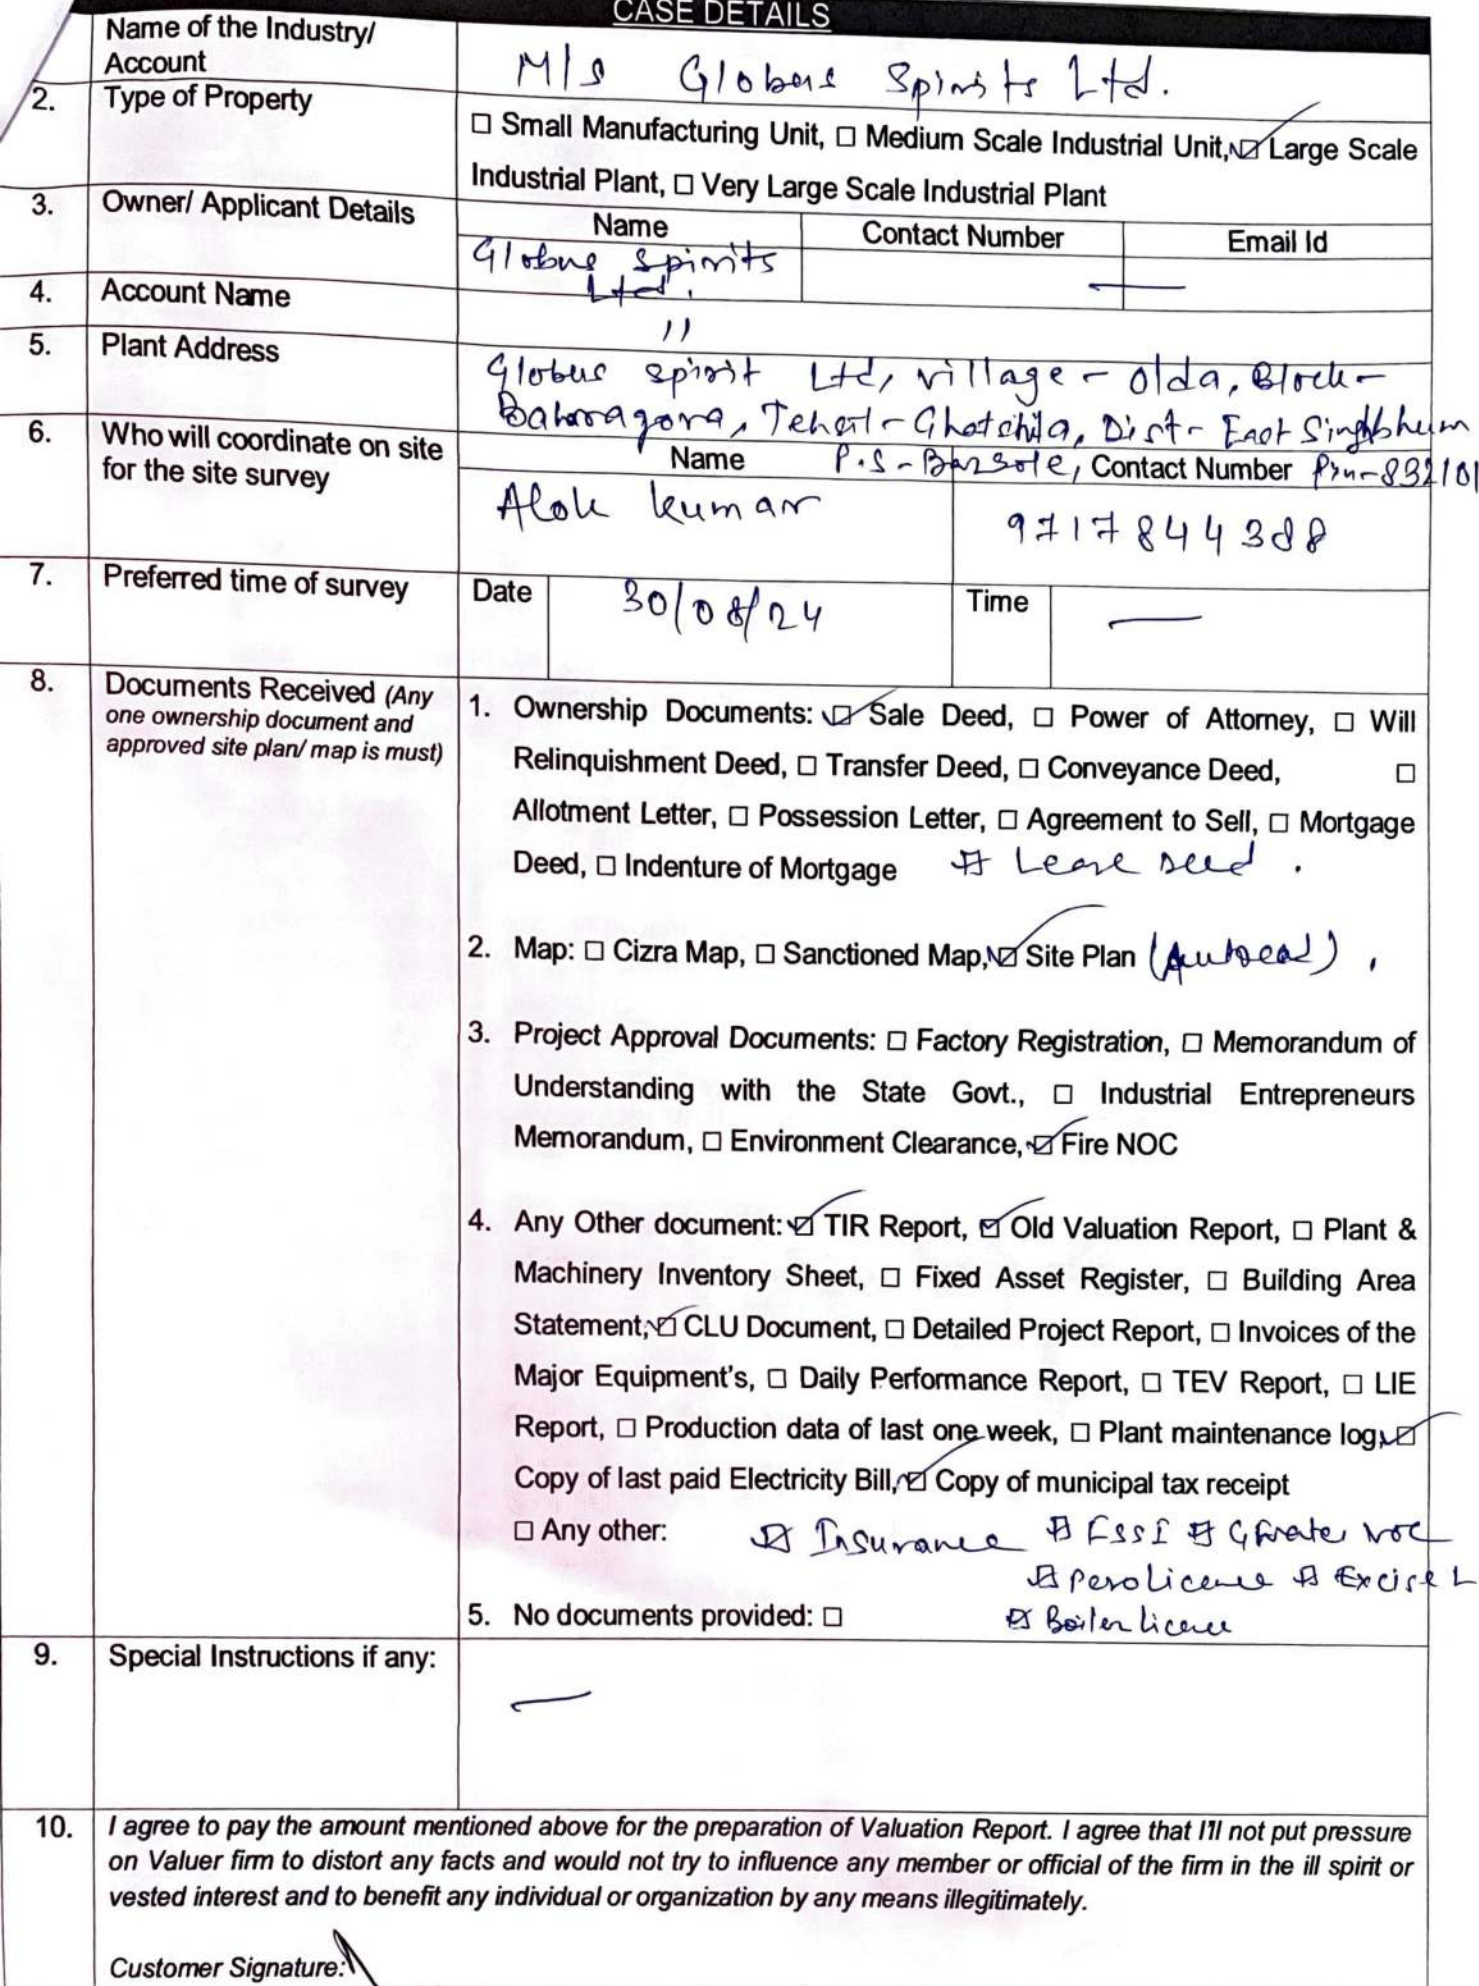 CASE DETAILS
Name of the Industry/
Account
M/s Globus Spirits Ltd.
2. Type of Property
☐ Small Manufacturing Unit, ☐ Medium Scale Industrial Unit, ☑ Large Scale
Industrial Plant, ☐ Very Large Scale Industrial Plant
3. Owner/ Applicant Details
Name Contact Number Email Id
Globus Spirits
Ltd. —
4. Account Name
"
5. Plant Address
Globus spirit Ltd, village - Olda, Block -
Baharagora, Tehsil - Ghatshila, Dist - East Singhbhum
P.S - Barsole, Pin - 832101
6. Who will coordinate on site
for the site survey
Name Contact Number
Alok kumar 9717844388
7. Preferred time of survey Date 30/08/24 Time —
8. Documents Received (Any
one ownership document and
approved site plan/ map is must)
1. Ownership Documents: ☑ Sale Deed, ☐ Power of Attorney, ☐ Will
Relinquishment Deed, ☐ Transfer Deed, ☐ Conveyance Deed, ☐
Allotment Letter, ☐ Possession Letter, ☐ Agreement to Sell, ☐ Mortgage
Deed, ☐ Indenture of Mortgage ☑ Lease deed .
2. Map: ☐ Cizra Map, ☐ Sanctioned Map, ☑ Site Plan (Autocad) ,
3. Project Approval Documents: ☐ Factory Registration, ☐ Memorandum of
Understanding with the State Govt., ☐ Industrial Entrepreneurs
Memorandum, ☐ Environment Clearance, ☑ Fire NOC
4. Any Other document: ☑ TIR Report, ☑ Old Valuation Report, ☐ Plant &
Machinery Inventory Sheet, ☐ Fixed Asset Register, ☐ Building Area
Statement, ☑ CLU Document, ☐ Detailed Project Report, ☐ Invoices of the
Major Equipment's, ☐ Daily Performance Report, ☐ TEV Report, ☐ LIE
Report, ☐ Production data of last one week, ☐ Plant maintenance log, ☑
Copy of last paid Electricity Bill, ☑ Copy of municipal tax receipt
☐ Any other: ☑ Insurance ☑ FSSI ☑ NOC
☑ Licence ☑ Excise L
☑ Boiler licence
5. No documents provided: ☐
9. Special Instructions if any:
—
10. I agree to pay the amount mentioned above for the preparation of Valuation Report. I agree that I'll not put pressure
on Valuer firm to distort any facts and would not try to influence any member or official of the firm in the ill spirit or
vested interest and to benefit any individual or organization by any means illegitimately.
Customer Signature: